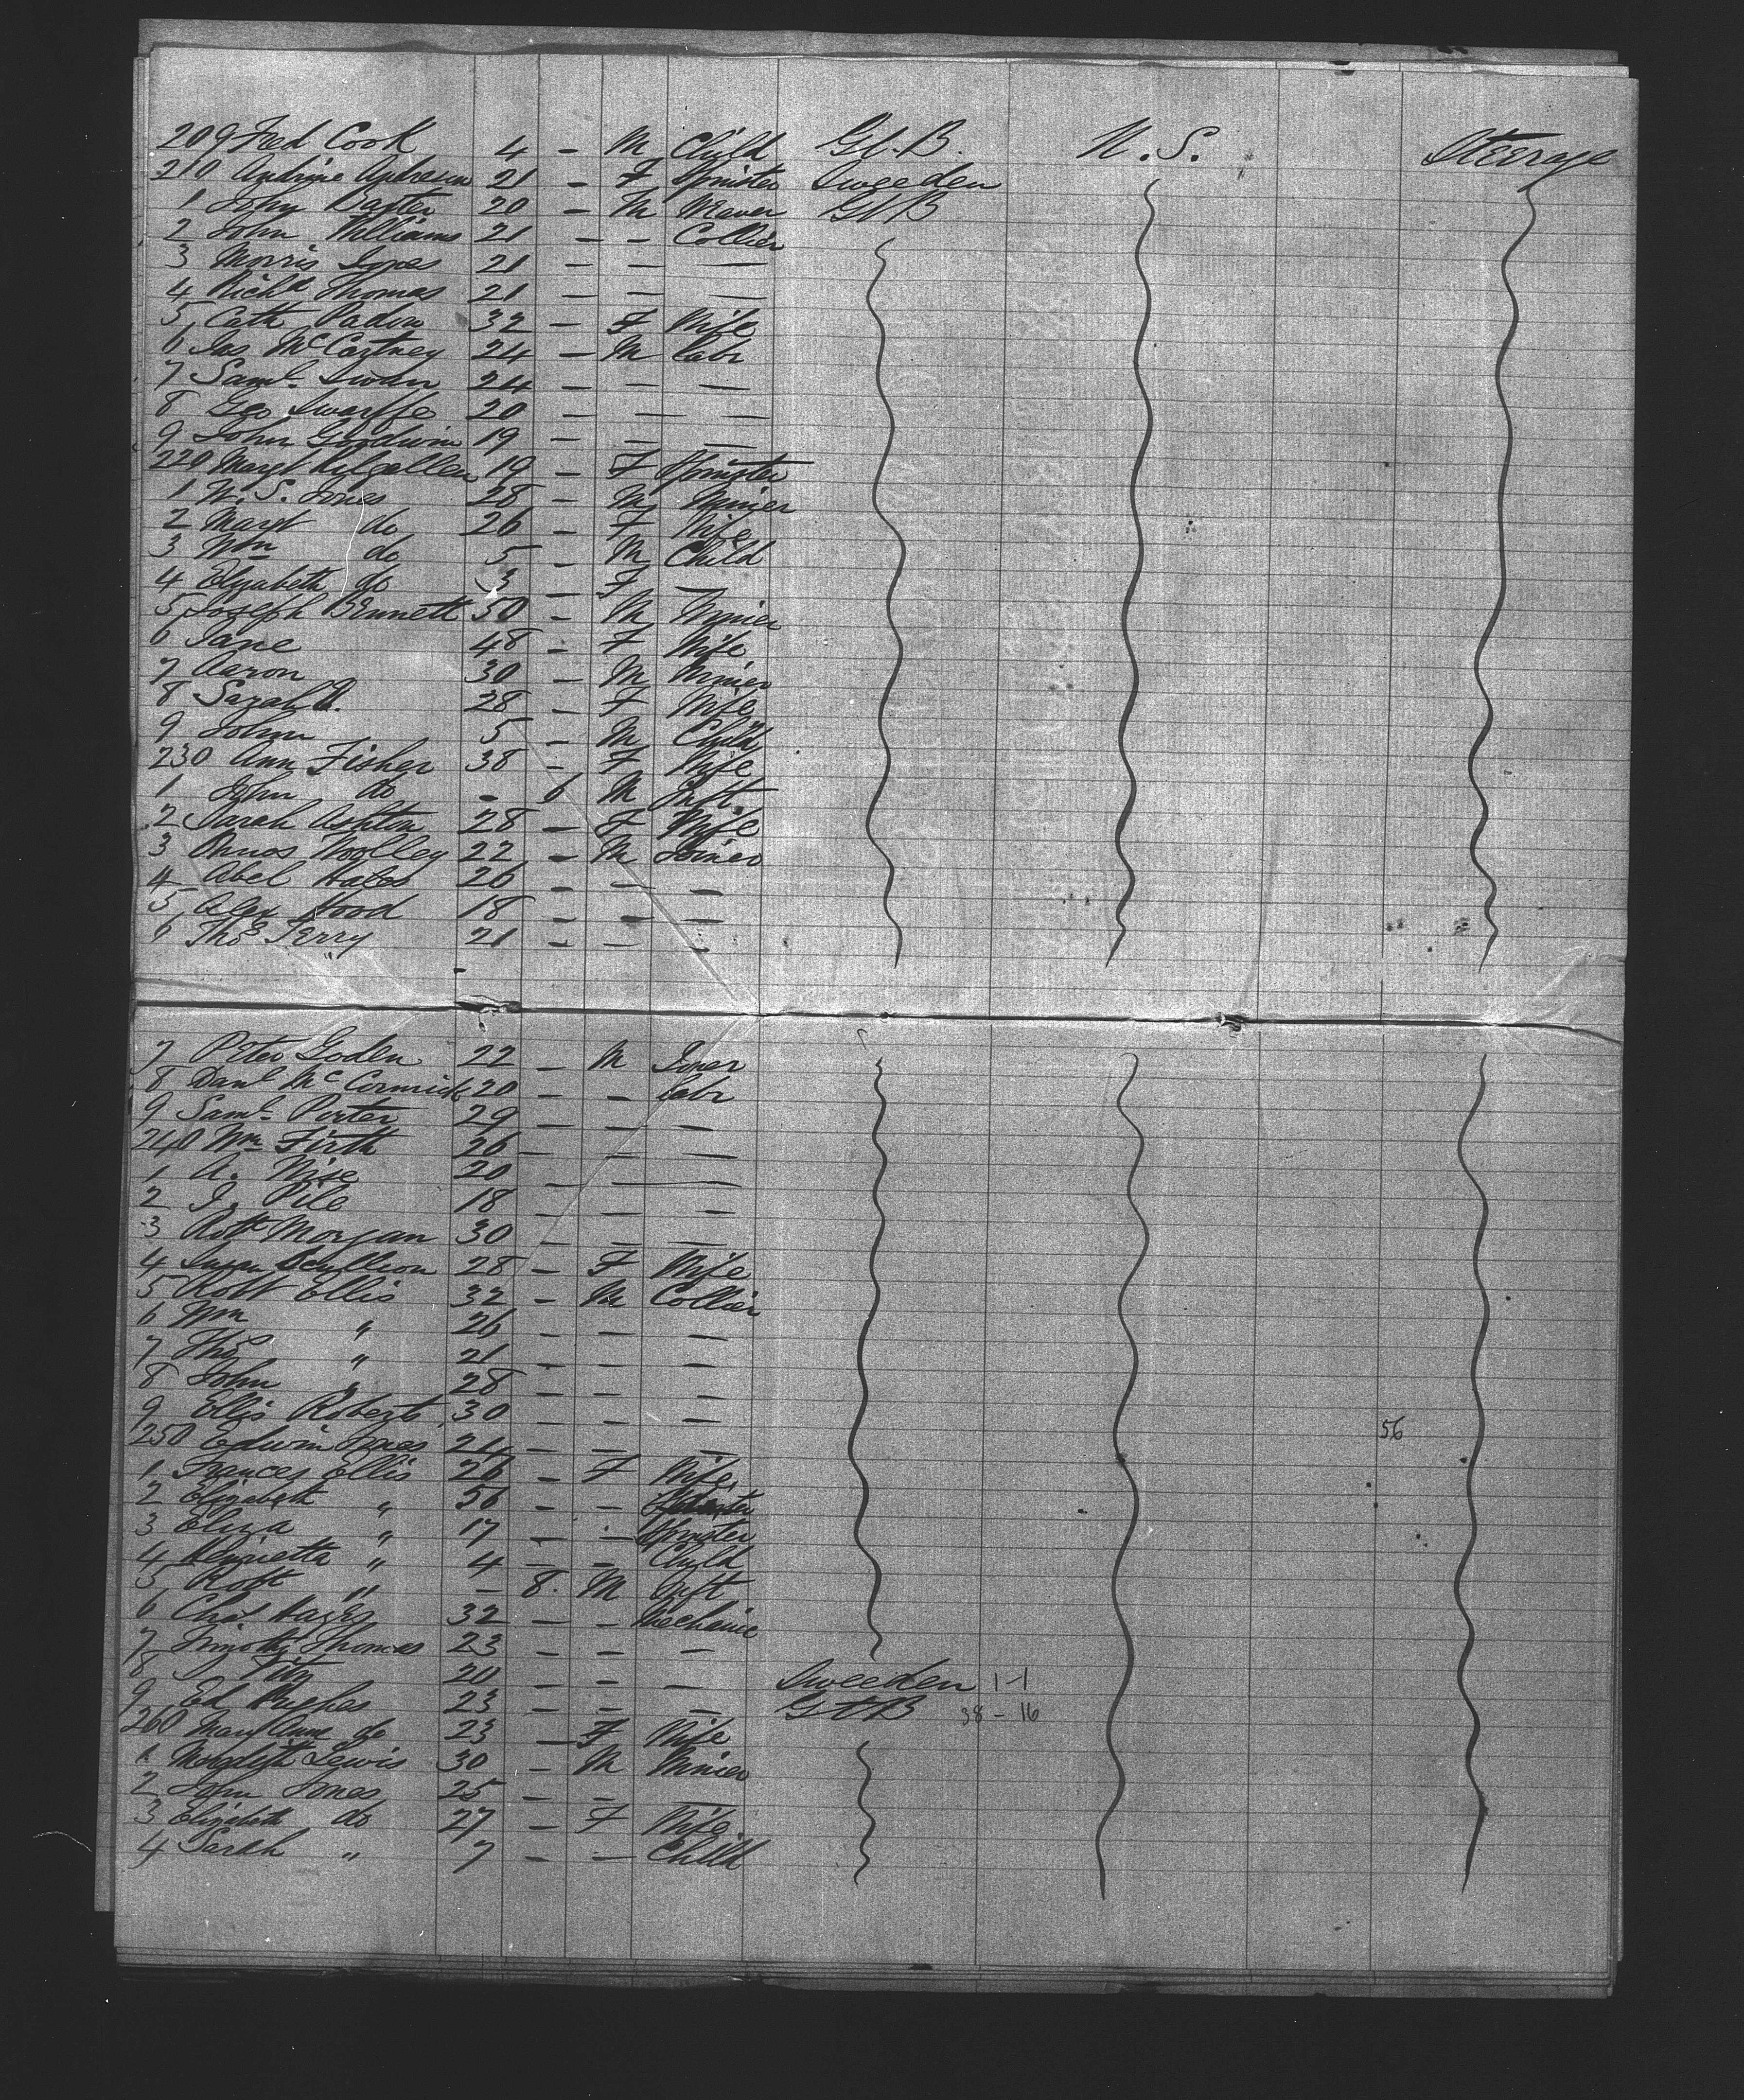 209 Fred Cook 4 - M Child Gt. B. U. S. Steerage
210 Andrine Andresen 21 - F Spinster Sweeden
1 John Baxter 20 - M Weaver Gt B
2 John Williams 21 - - Collier
3 Morris Jones 21 - - -
4 Richd Thomas 21 - - -
5 Cath Padon 32 - F Wife
6 Jas McCartney 24 - M Labr
7 Saml Swan 24 - - -
8 Geo Swarffe 20 - - -
9 John Goodwin 19 - - -
220 Margt Kilgallen 19 - F Spinster
1 W. S. Jones 28 - M Minier
2 Margt do 26 - F Wife
3 Wm do 5 - M Child
4 Elizabeth do 3 - F -
5 Joseph Bennett 50 - M Minier
6 Jane 48 - F Wife
7 Aaron 30 - M Minier
8 Sarah A. 28 - F Wife
9 John 5 - M Child
230 Ann Fisher 38 - F Wife
1 John do - 6 M Inft
2 Sarah Ashton 28 - F Wife
3 Woolley 22 - M Joiner
4 Abel Hales 26 - - -
5 Alex Hood 18 - - -
6 Thos Terry 21 - - -
7 Peter Goden 22 - M Joner
8 Danl McCormick 20 - - Labr
9 Saml Porter 29 - - -
240 Wm Firth 26 - - -
1 A. Wise 20 - - -
2 J. Pile 18 - - -
3 Robt Morgan 30 - - -
4 Susan Scullion 28 - F Wife
5 Robt Ellis 32 - M Collier
6 Wm " 26 - - -
7 Thos " 21 - - -
8 John " 28 - - -
9 Ellis Roberts 30 - - -
56
250 Edwin Jones 24 - - -
1 Frances Ellis 26 - F Wife
2 Elizabeth " 56 - -
3 Eliza " 17 - - Spinster
4 Henrietta " 4 - - Child
5 Robt " - 8. M Inft
6 Chas Hayes 32 - - Mechanic
7 Timothy Thomas 23 - - -
8 20 - - - Sweeden 1-1
9 Ed Hughes 23 - - - Gt B 38 - 16
260 Mary Anne do 23 - F Wife
1 Meredith Lewis 30 - M Minier
2 John Jones 25 - - -
3 Elizabeth do 27 - F Wife
4 Sarah " 7 - - Child